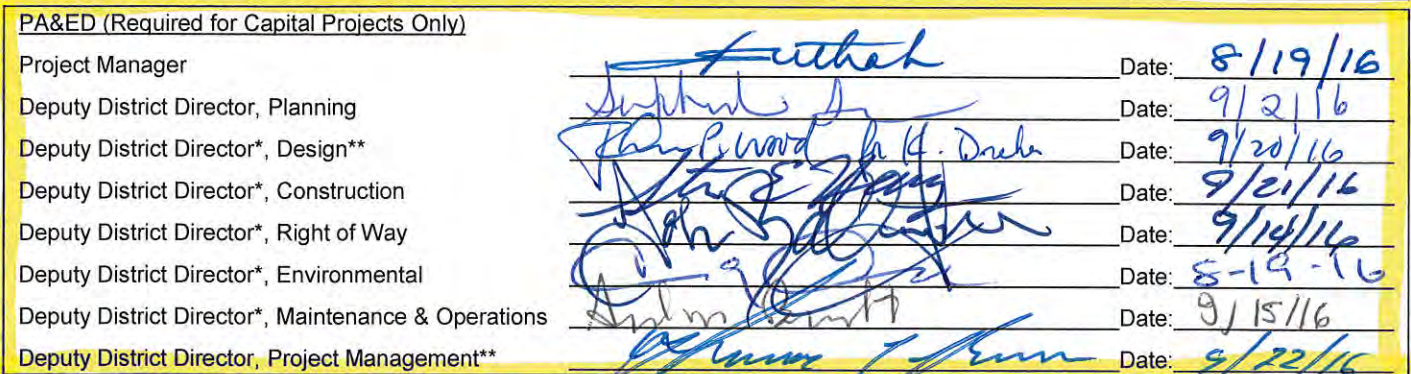 PA&ED (Required for Capital Projects Only)
Project Manager Date: 8/19/16
Deputy District Director, Planning Date: 9/2/16
Deputy District Director*, Design** for K. Date: 9/20/16
Deputy District Director*, Construction Date: 9/21/16
Deputy District Director*, Right of Way Date: 9/14/16
Deputy District Director*, Environmental Date: 8-19-16
Deputy District Director*, Maintenance & Operations Date: 9/15/16
Deputy District Director, Project Management** Date: 9/22/16